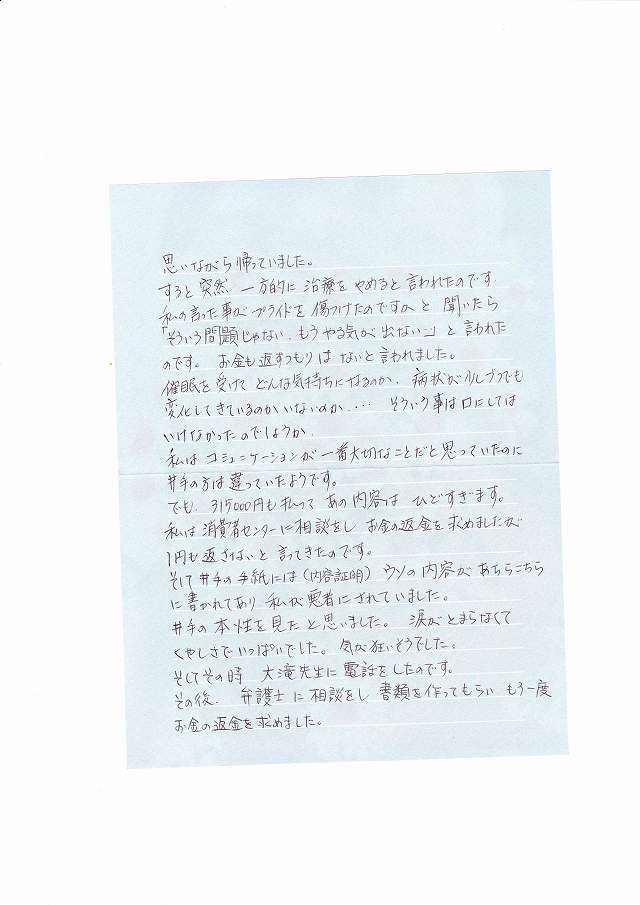 思いながら帰っていました。
すると突然、一方的に治療をやめると言われたのです。
私の言った事がプライドを傷つけたのですか と 聞いたら
「そういう問題じゃない、もうやる気が出ない」と 言われた
のです。 お金も返すつもりは ないと言われました。
催眠を受けて どんな気持ちになるのか、 病状が少しづつでも
変化してきているのかいないのか‥‥ そういう事は口にしては
いけなかったのでしょうか、
私は コミュニケーションが一番大切なことだと思っていたのに
井手の方は違っていたようです。
でも、315000円も払って あの内容は ひどすぎます。
私は消費者センターに相談をし お金の返金を求めましたが
1円も返さないと 言ってきたのです。
そして井手の手紙には(内容証明) ウソの内容が あちらこちら
に書かれてあり 私が悪者にされていました。
井手の本性を見たと思いました。 涙がとまらなくて
くやしさでいっぱいでした。 気が狂いそうでした。
そしてその時 大滝先生に電話をしたのです。
その後、 弁護士に相談をし 書類を作ってもらい もう一度
お金の返金を求めました。